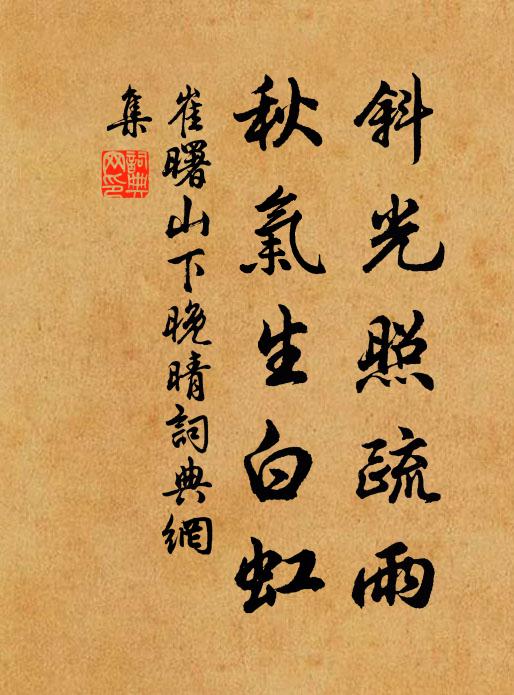 斜光照疏雨
秋氣生白虹
崔曙山下晚晴詞典網
集
詞典
网印